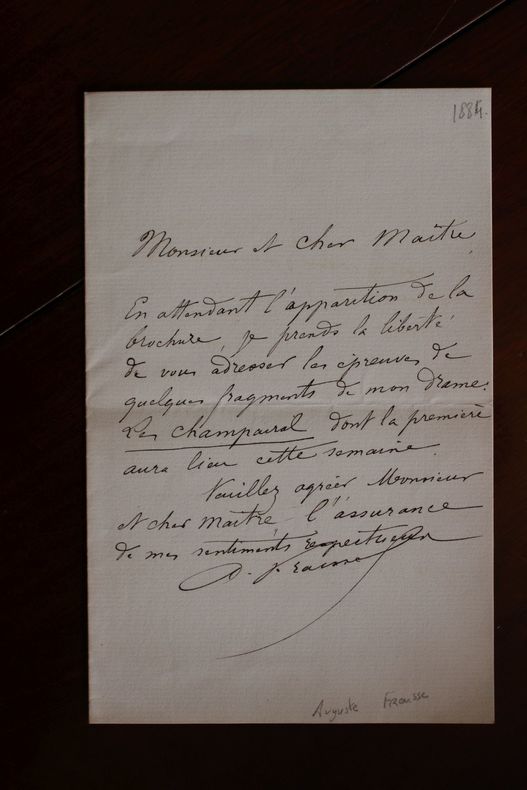 1884.
Monsieur et cher Maître,
En attendant l'apparition de la
brochure, je prends la liberté
de vous adresser les épreuves de
quelques fragments de mon drame:
Les Champairol dont la première
aura lieu cette semaine.
Veuillez agréer Monsieur
et cher maître l'assurance
de mes sentiments respectueux
A. Fraisse
Auguste Fraisse